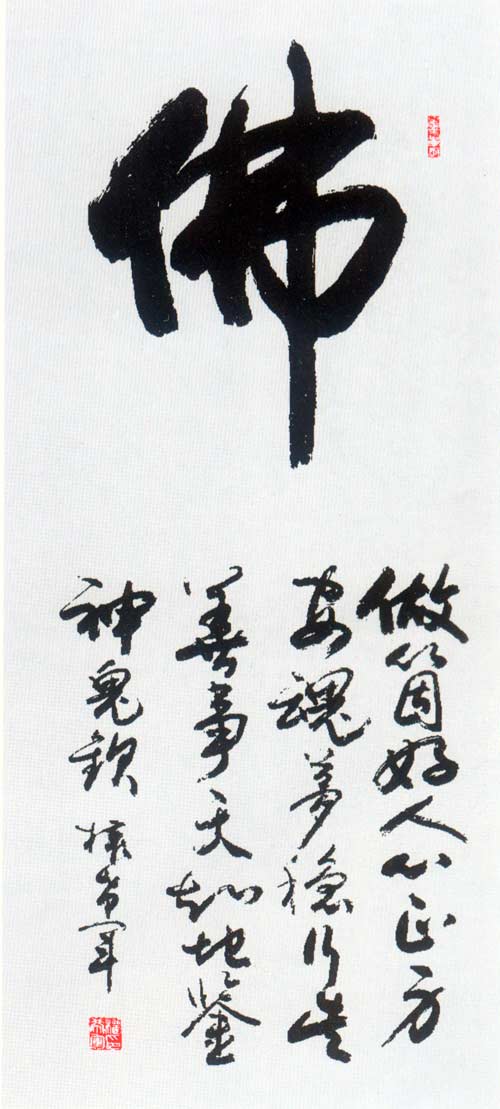 佛
做箇好人心正身
安魂夢穩行些
善事天知地鑒
神鬼欽 權希軍